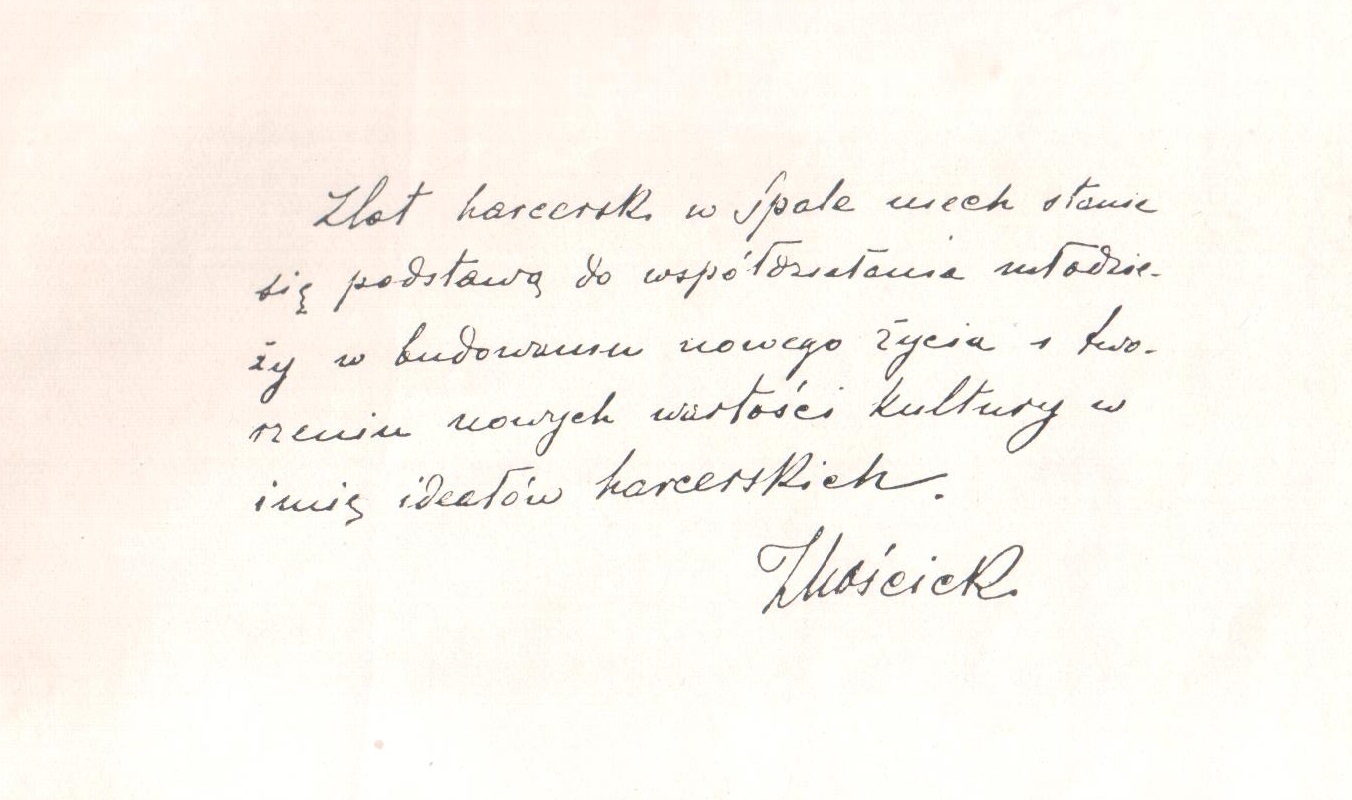 Zlot harcerski w Spale niech stanie
się podstawą do współdziałania młodzie-
ży w budowaniu nowego życia i two-
rzeniu nowych wartości kultury w
imię ideałów harcerskich.
IMościcki